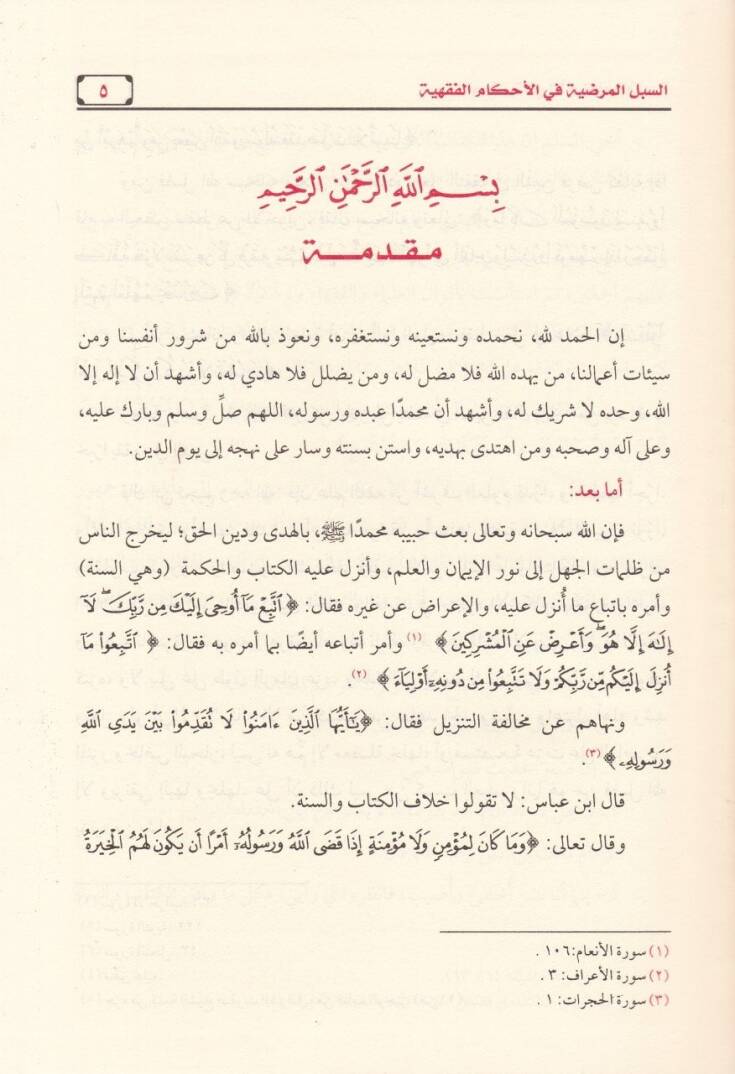 السبل المرضية في الأحكام الفقهية
٥
بِسْمِ ٱللَّهِ ٱلرَّحْمَٰنِ ٱلرَّحِيمِ
مقدمة
إن الحمد لله، نحمده ونستعينه ونستغفره، ونعوذ بالله من شرور أنفسنا ومن
سيئات أعمالنا، من يهده الله فلا مضل له، ومن يضلل فلا هادي له، وأشهد أن لا إله إلا
الله، وحده لا شريك له، وأشهد أن محمدًا عبده ورسوله، اللهم صلِّ وسلم وبارك عليه،
وعلى آله وصحبه ومن اهتدى بهديه، واستن بسنته وسار على نهجه إلى يوم الدين.
أما بعد:
فإن الله سبحانه وتعالى بعث حبيبه محمدًا ﷺ، بالهدى ودين الحق؛ ليخرج الناس
من ظلمات الجهل إلى نور الإيمان والعلم، وأنزل عليه الكتاب والحكمة (وهي السنة)
وأمره باتباع ما أُنزل عليه، والإعراض عن غيره فقال: ﴿ ٱتَّبِعْ مَآ أُوحِىَ إِلَيْكَ مِن رَّبِّكَ ۖ لَآ
إِلَٰهَ إِلَّا هُوَ ۖ وَأَعْرِضْ عَنِ ٱلْمُشْرِكِينَ ﴾ (١) وأمر أتباعه أيضًا بما أمره به فقال: ﴿ ٱتَّبِعُوا۟ مَآ
أُنزِلَ إِلَيْكُم مِّن رَّبِّكُمْ وَلَا تَتَّبِعُوا۟ مِن دُونِهِۦٓ أَوْلِيَآءَ ﴾ (٢).
ونهاهم عن مخالفة التنزيل فقال: ﴿يَٰٓأَيُّهَا ٱلَّذِينَ ءَامَنُوا۟ لَا تُقَدِّمُوا۟ بَيْنَ يَدَىِ ٱللَّهِ
وَرَسُولِهِۦ ﴾ (٣).
قال ابن عباس: لا تقولوا خلاف الكتاب والسنة.
وقال تعالى: ﴿وَمَا كَانَ لِمُؤْمِنٍ وَلَا مُؤْمِنَةٍ إِذَا قَضَى ٱللَّهُ وَرَسُولُهُۥٓ أَمْرًا أَن يَكُونَ لَهُمُ ٱلْخِيَرَةُ
(١) سورة الأنعام: ١٠٦ .
(٢) سورة الأعراف: ٣ .
(٣) سورة الحجرات: ١ .